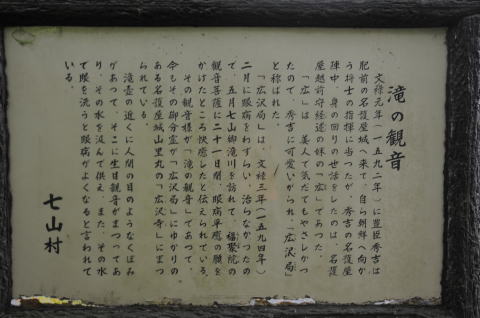 滝の観音
文禄元年（一五九二年）に豊臣秀吉は
肥前の名護屋城へ来て、自ら朝鮮へ向か
う将士の指揮に当ったが、秀吉の名護屋
陣中、身の回りの世話をしたのは、名護
屋越前守経述の妹の「広」であった。
「広」は、美人で気だてもやさしかっ
たので、秀吉に可愛いがられ、「広沢局」
と称ばれた。
「広沢局」は、文禄三年（一五九四年）
二月に眼病をわずらい、治らなかったの
で、五月七山御滝川を訪れて、福聚院の
観音菩薩に二十一日間、眼病平癒の願を
かけたところ快癒したと伝えられている。
その観音様が「滝の観音」であって、
今もその御分霊が「広沢局」にゆかりの
ある名護屋城山里丸の「広沢寺」にまつ
られている。
滝壺の近くに人間の目のようなくぼみ
があって、そこに生目観音がまつってあ
り、その水を汲んで供え、また、その水
で眼を洗うと眼病がよくなると言われて
いる。
七山村